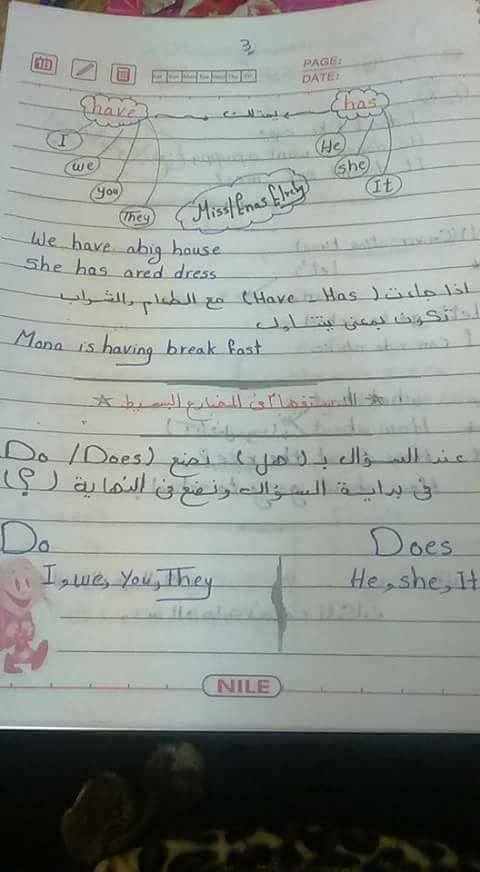 3
PAGE:
DATE:
Sat Sun Mon Tue Wed Thu Fri
have يمتلك has
I He
we she
you It
They
Miss/Enas Elrefy
We have abig house
She has ared dress
اذا جاءت (Have - Has) مع الطعام والشراب
تكون بمعنى يتناول
Mona is having break fast
☆ الاستفهام فى المضارع البسيط ☆
عند السؤال بـ (هل) نضع (Do / Does)
فى بداية السؤال ونضع فى النهاية (؟)
Do Does
I, we, You, They He, she, It
NILE